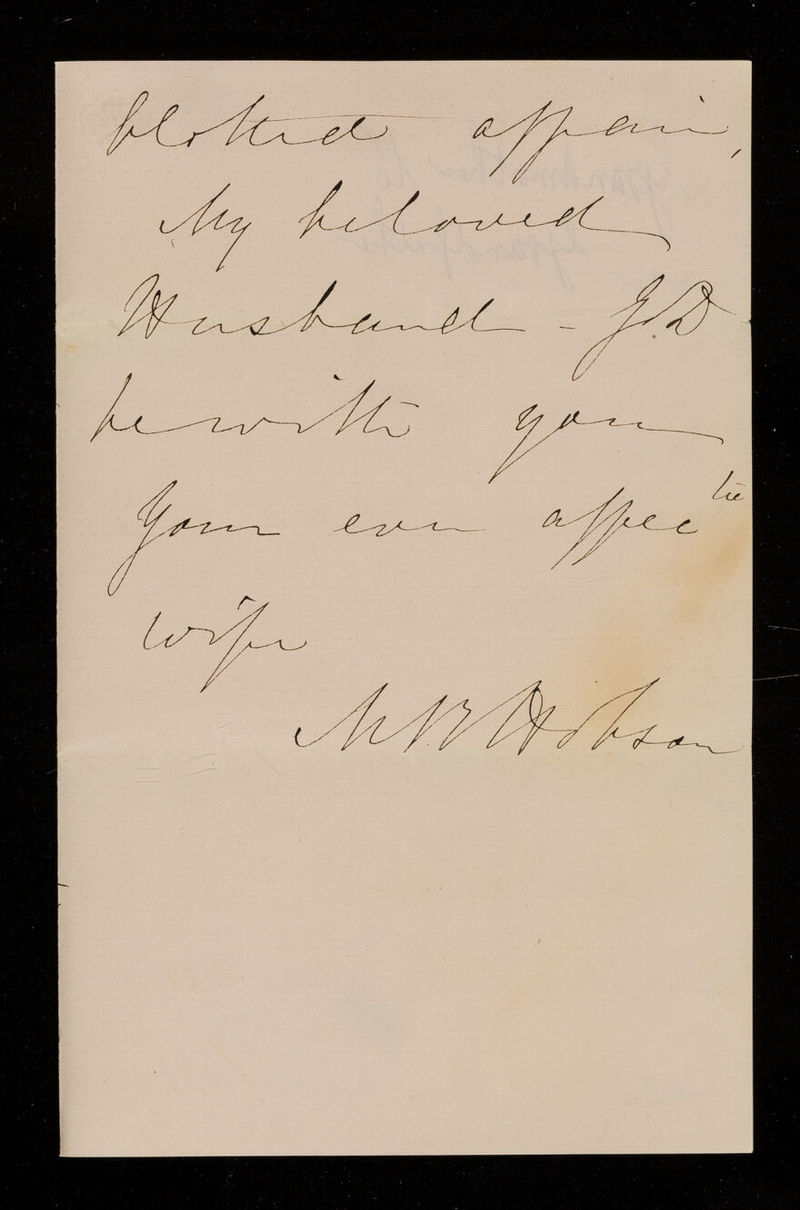 blotted affair,
My beloved
Husband - God
be with you
Your ever affec tie
wife
M B Hobson